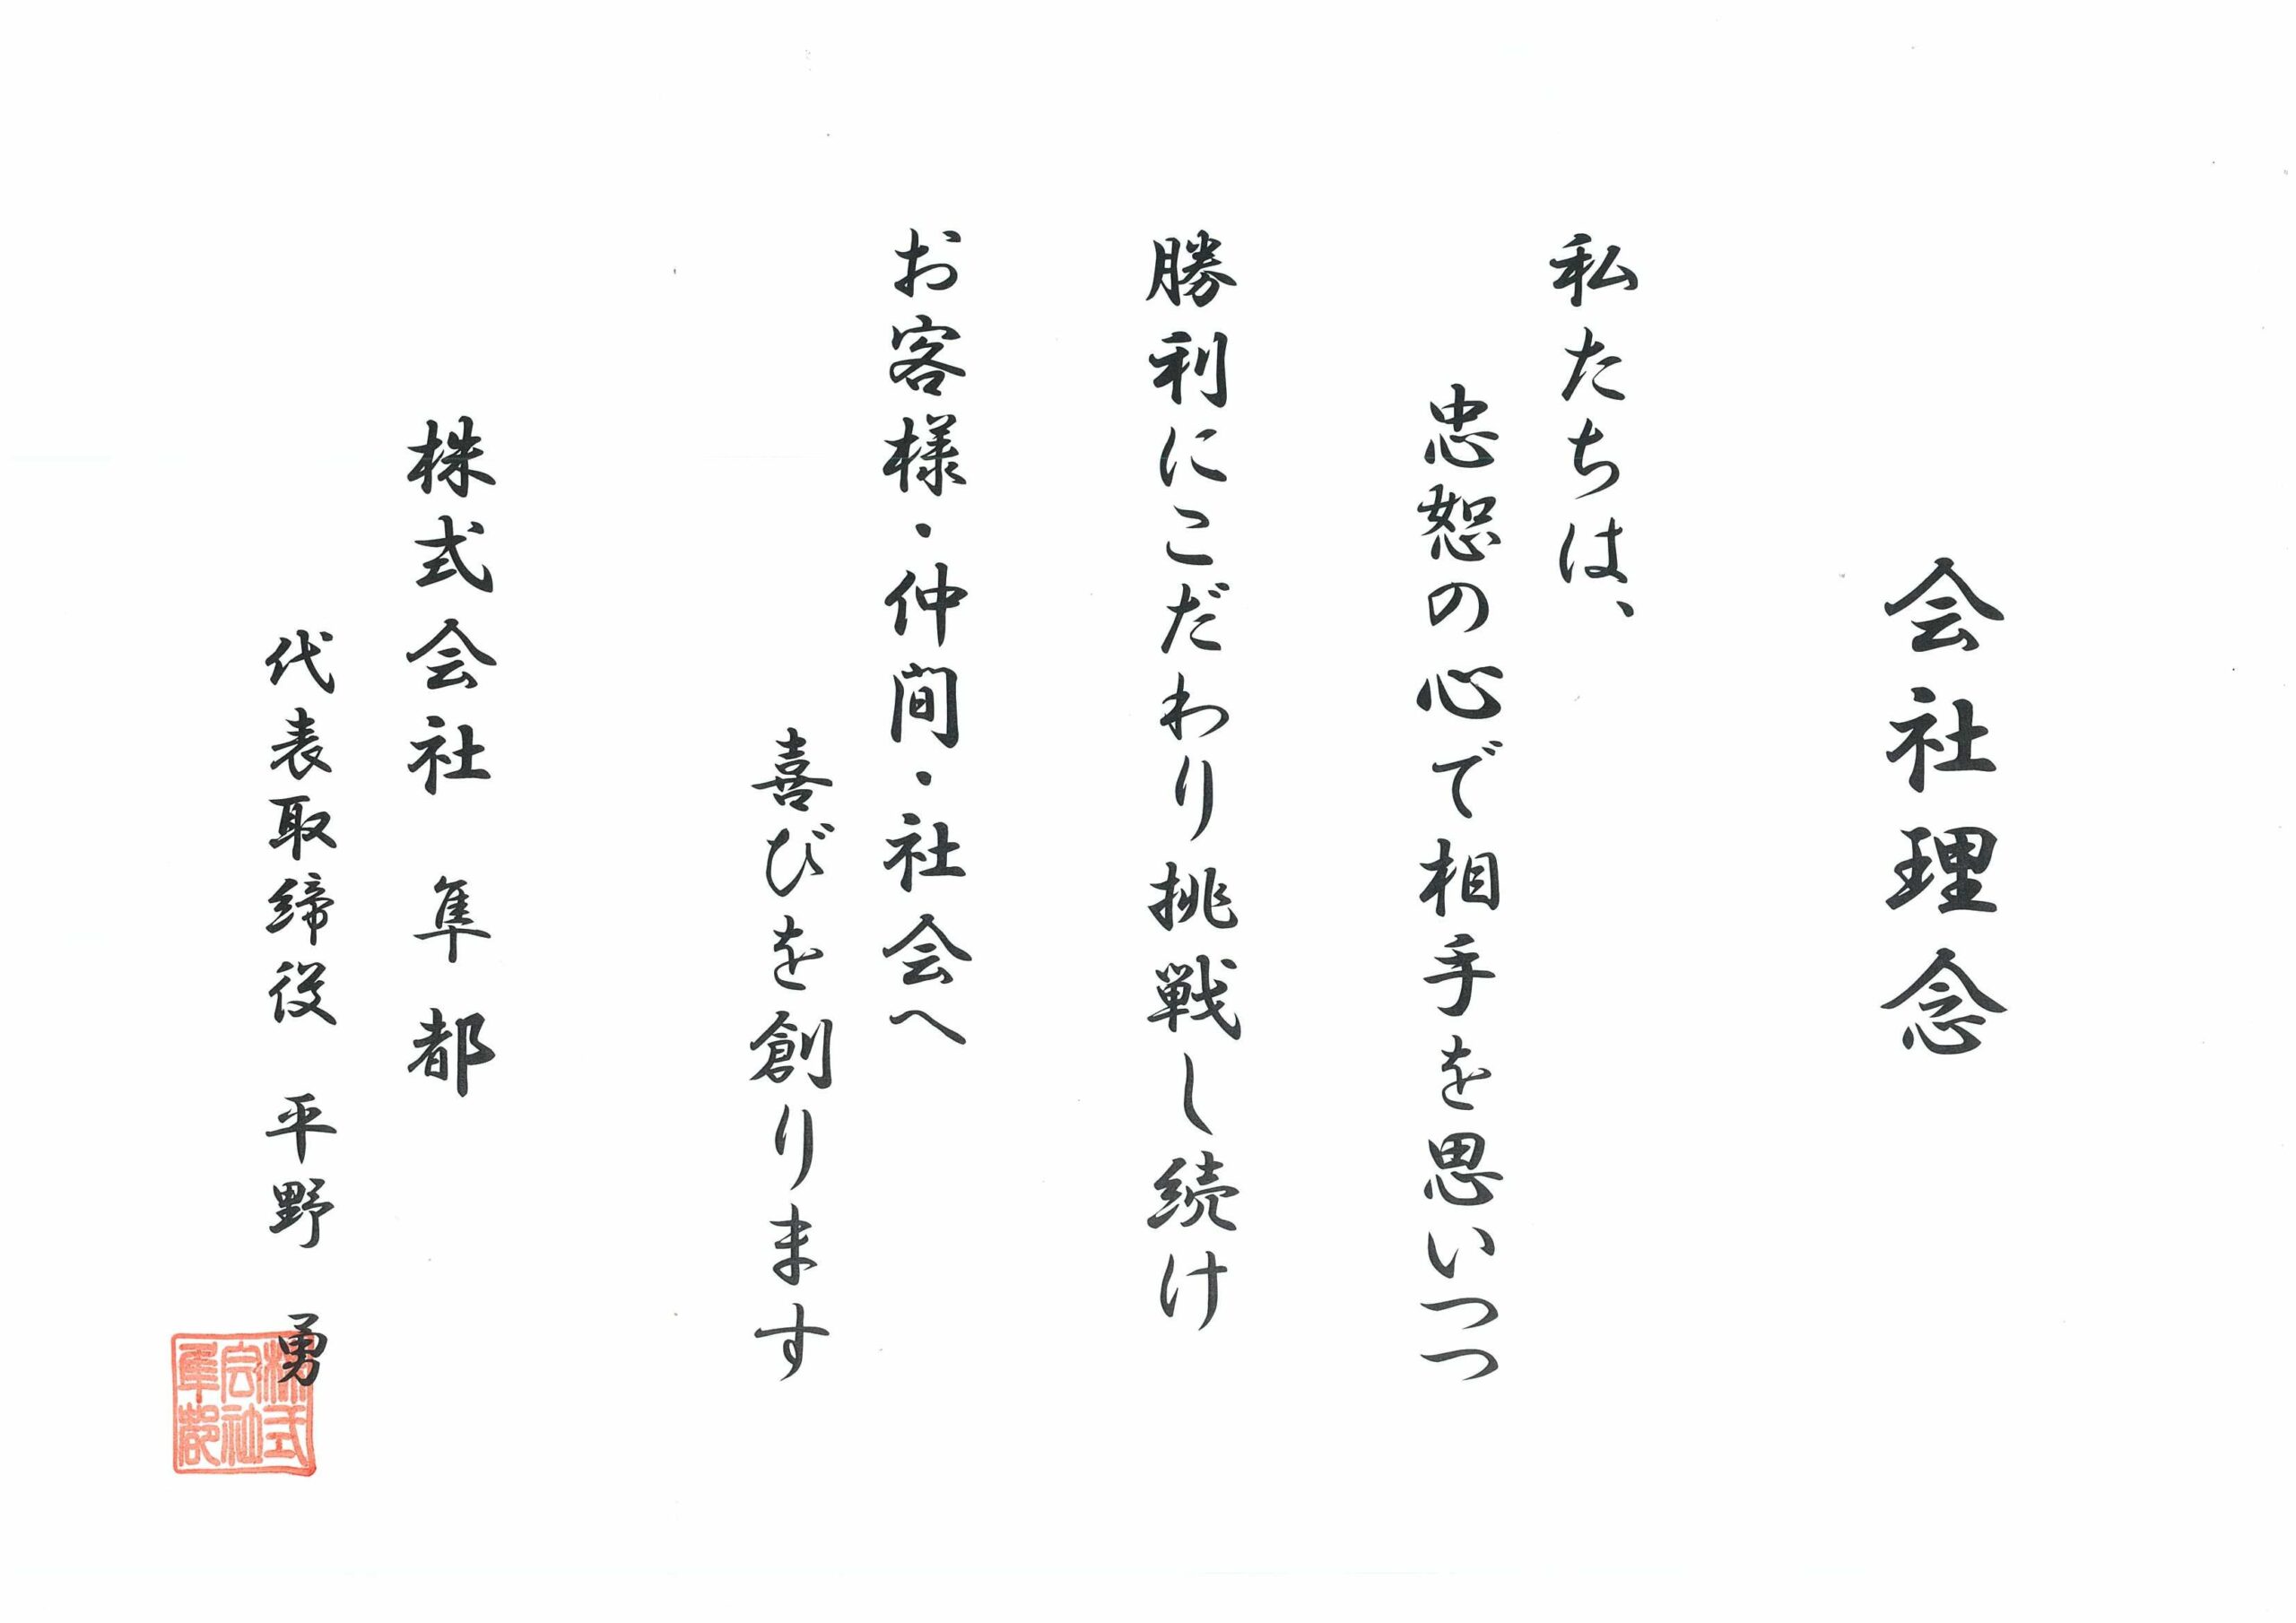 会社理念
私たちは、
忠恕の心で相手を思いつつ
勝利にこだわり挑戦し続け
お客様・仲間・社会へ
喜びを創ります
株式会社 隼都
代表取締役 平野 勇
株式
会社
隼都